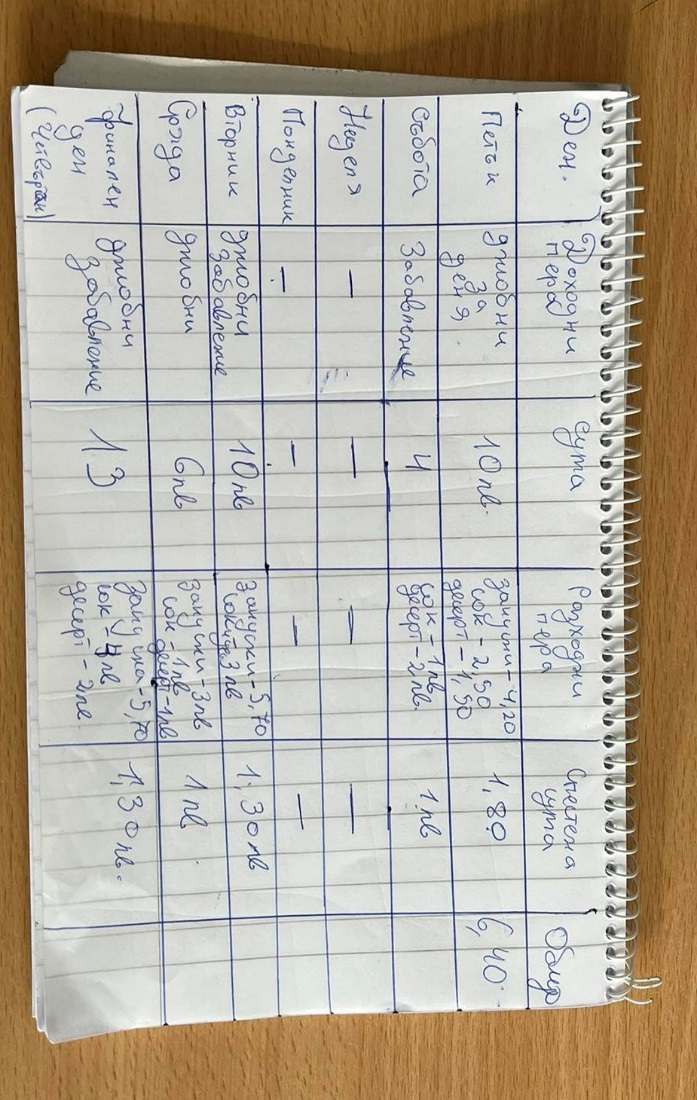 Ден.
Доходни
пера
Сума
Разходни
пера
Спестена
сума
Общо
Петък
джобни
за
деня.
10 лв.
закуски-4,20
сок-2,50
десерт-1,50
1,80
6,40.
Събота
Забавление
4
сок-1лв.
десерт-2лв.
1лв
Неделя
—
—
—
—
Понделник
—
—
—
—
Вторник
джобни
забавление
10лв
Закуски-5,70
сок-3лв
1,30лв
Сряда
джобни
6лв
закуски-3лв
сок-1лв
десерт-1лв
1лв.
Финален
ден
джобни
забавление
13
закуска-5,70
сок-4лв
десерт-2лв
1,30лв.